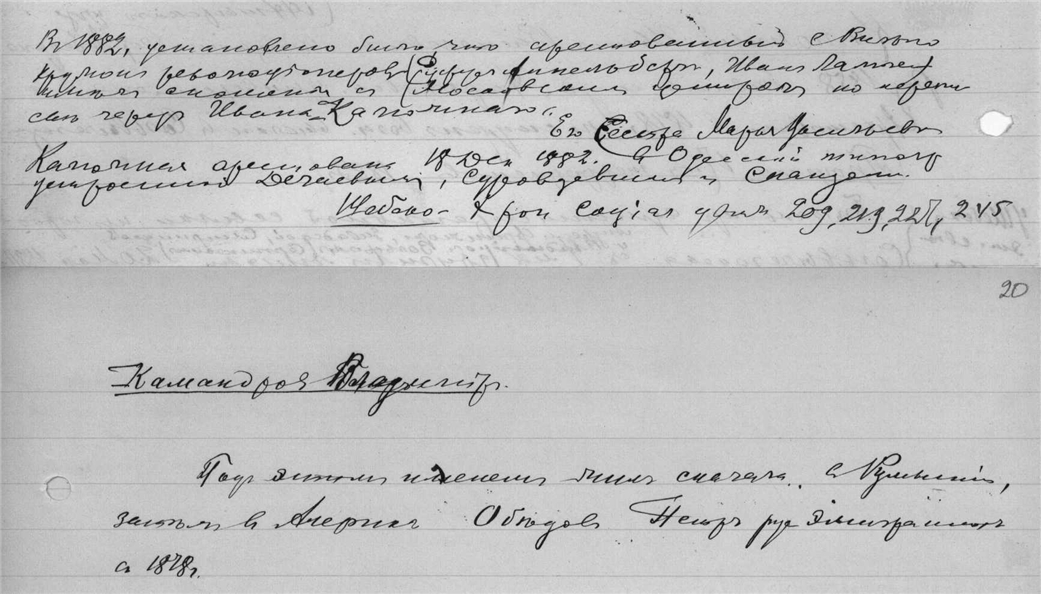 В 1882, установлено было что арестованный в Вильно
кружок революционеров
имел сношения с Московским центром по перепи
ске через Ивана Калюжнаго.
Его Сестра Марья Васильевн
Калюжная арестована 18 Дек 1882. в Одесской типогр
устроенной Дегаевым, Суровцевым и Спандони.
Шебеко - Хрон соціал движ 209, 219, 225, 245
20
Камандров Владимір.
Под этим именем жил сначала в Румыніи,
затем в Америке Обедов Петр рус эмигрант
с 1878г.